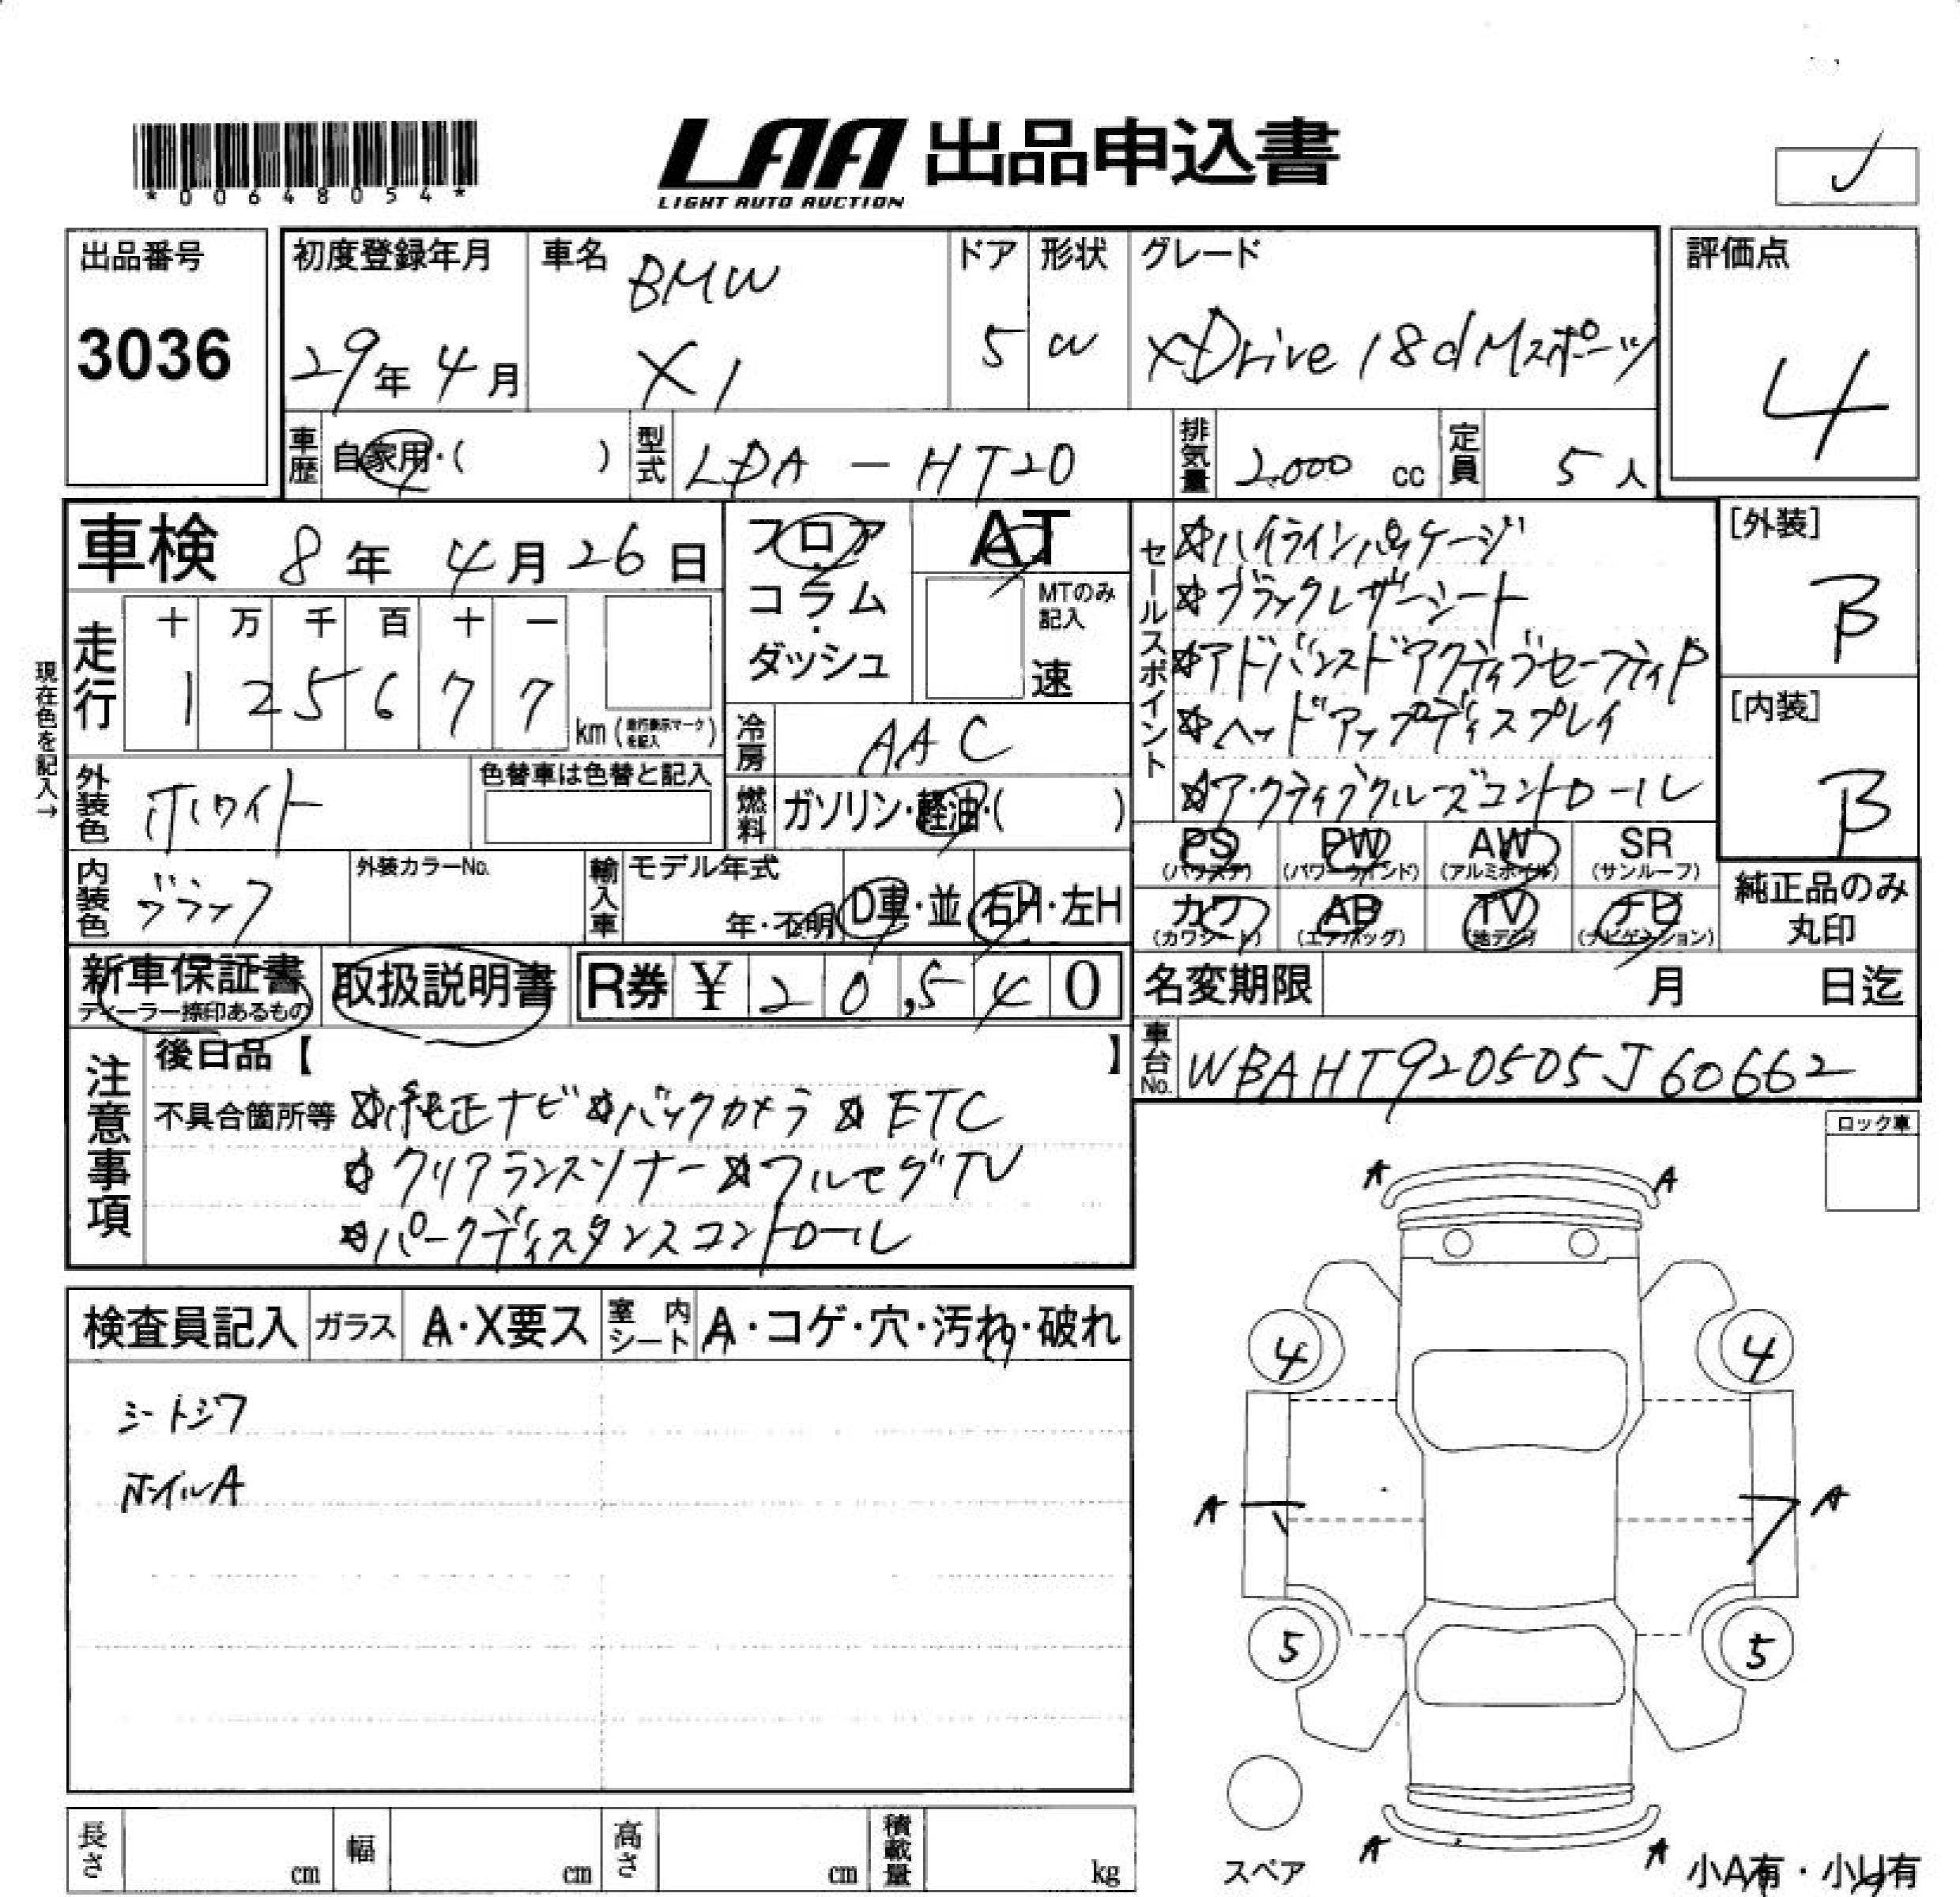 *00648054*
LAA 出品申込書
LIGHT AUTO AUCTION
出品番号
3036
初度登録年月
29年 4月
車名
BMW
X1
ドア
5
形状
W
グレード
xDrive 18d Mスポーツ
評価点
4
車歴 自家用・( )
型式 LDA-HT20
排気量 2,000 cc
定員 5人
車検 8年 4月 26日
走行
十 万 千 百 十 一
1 2 5 6 7 7
km (走行表示マークを記入)
現在色を記入→
外装色 ホワイト
色替車は色替と記入
内装色 ブラック
外装カラーNo.
フロア・
コラム・
ダッシュ
AT
MTのみ記入
速
冷房 AAC
燃料 ガソリン・軽油・( )
輸入車
モデル年式
年・不明
D車・並
右H・左H
セールスポイント
☆ハイラインパッケージ
☆ブラックレザーシート
☆アドバンスドアクティブセーフティP
☆ヘッドアップディスプレイ
☆アクティブクルーズコントロール
[外装]
B
[内装]
B
PS (パワステ)
PW (パワーウインド)
AW (アルミホイル)
SR (サンルーフ)
カワ (カワシート)
AB (エアバッグ)
TV (地デジ)
ナビ (ナビゲーション)
純正品のみ
丸印
新車保証書
ディーラー捺印あるもの
取扱説明書
R券 ¥ 20,540
名変期限 月 日迄
車台No. WBAHT920505J60662
注意事項
後日品【 】
不具合箇所等 ☆純正ナビ☆バックカメラ☆ETC
☆クリアランスソナー☆フルセグTV
☆パークディスタンスコントロール
ロック車
検査員記入
ガラス A・X要ス
室内シート A・コゲ・穴・汚れ・破れ
シートシワ
ホイルA
A A
4 4
A A
5 5
A A
スペア
小A有・小U有
長さ cm
幅 cm
高さ cm
積載量 kg